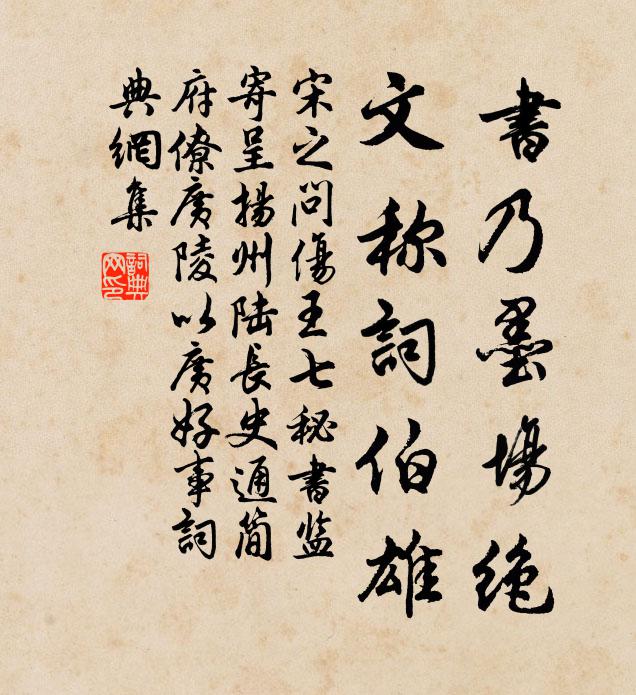 書乃墨場絶
文称詞伯雄
宋之问傷王七秘書监
寄呈揚州陆長史通简
府僚廣陵以廣好事詞
典網集
詞典网印